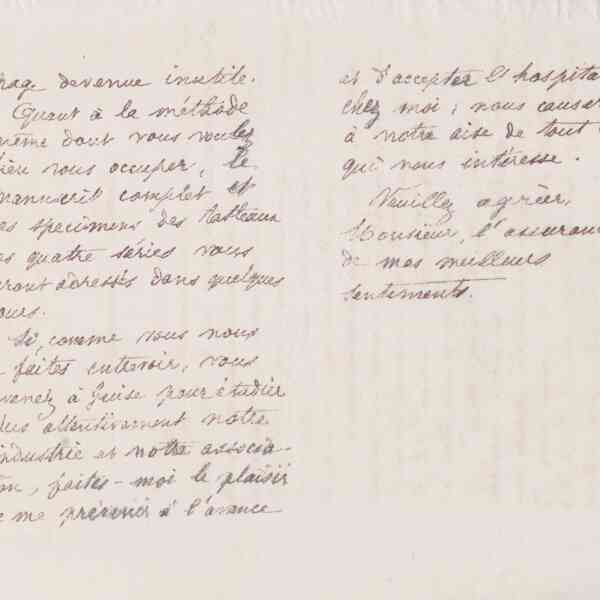 nag. devenue inutile.
Quant à la méthode
même dont vous voulez
bien vous occuper, le
manuscrit complet et
es specimens des tableaux
es quatre séries vous
ront adressés dans quelques
ours.
Si, comme vous nous
faites entrevoir, vous
venez à Guise pour étudier
lus attentivement notre
industrie et notre associa-
on, faites-moi le plaisir
e me prévenir à l'avance
et d'accepter l'hospita
chez moi ; nous causer
à notre aise de tout
qui nous intéresse.
Veuillez agréer,
Monsieur, l'assuran
de mes meilleurs
sentiments.